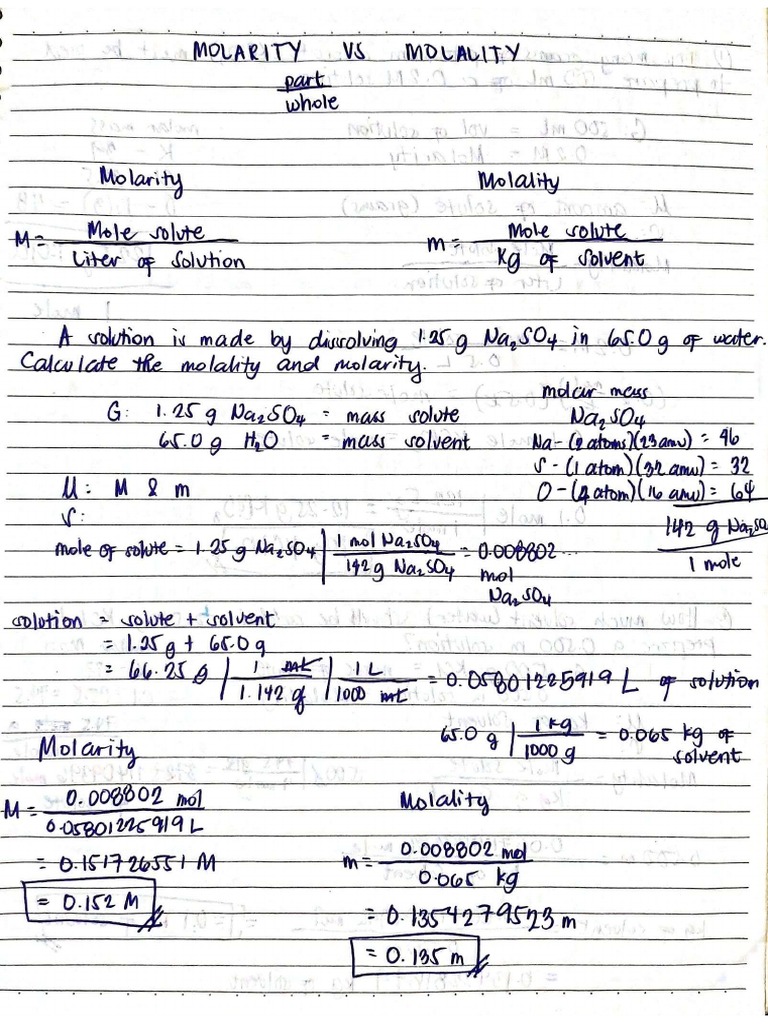 MOLARITY VS MOLALITY
part
whole
Molarity
M = Mole solute
Liter of solution
Molality
m = Mole solute
Kg of solvent
A solution is made by dissolving 1.25 g Na₂SO₄ in 65.0 g of water.
Calculate the molality and molarity.
G: 1.25 g Na₂SO₄ = mass solute
65.0 g H₂O = mass solvent
U: M & m
S:
molar mass
Na₂SO₄
Na - (2 atoms)(23 amu) = 46
S - (1 atom)(32 amu) = 32
O - (4 atom)(16 amu) = 64
142 g Na₂SO₄
1 mole
mole of solute = 1.25 g Na₂SO₄ | 1 mol Na₂SO₄ = 0.008802...
142 g Na₂SO₄ mol
Na₂SO₄
solution = solute + solvent
= 1.25 g + 65.0 g
= 66.25 g | 1 mL | 1 L = 0.05801225919 L of solution
1.142 g | 1000 mL
65.0 g | 1 kg = 0.065 kg of
1000 g solvent
Molarity
M = 0.008802 mol
0.05801225919 L
= 0.151726551 M
= 0.152 M
Molality
m = 0.008802 mol
0.065 kg
= 0.1354279523 m
= 0.135 m